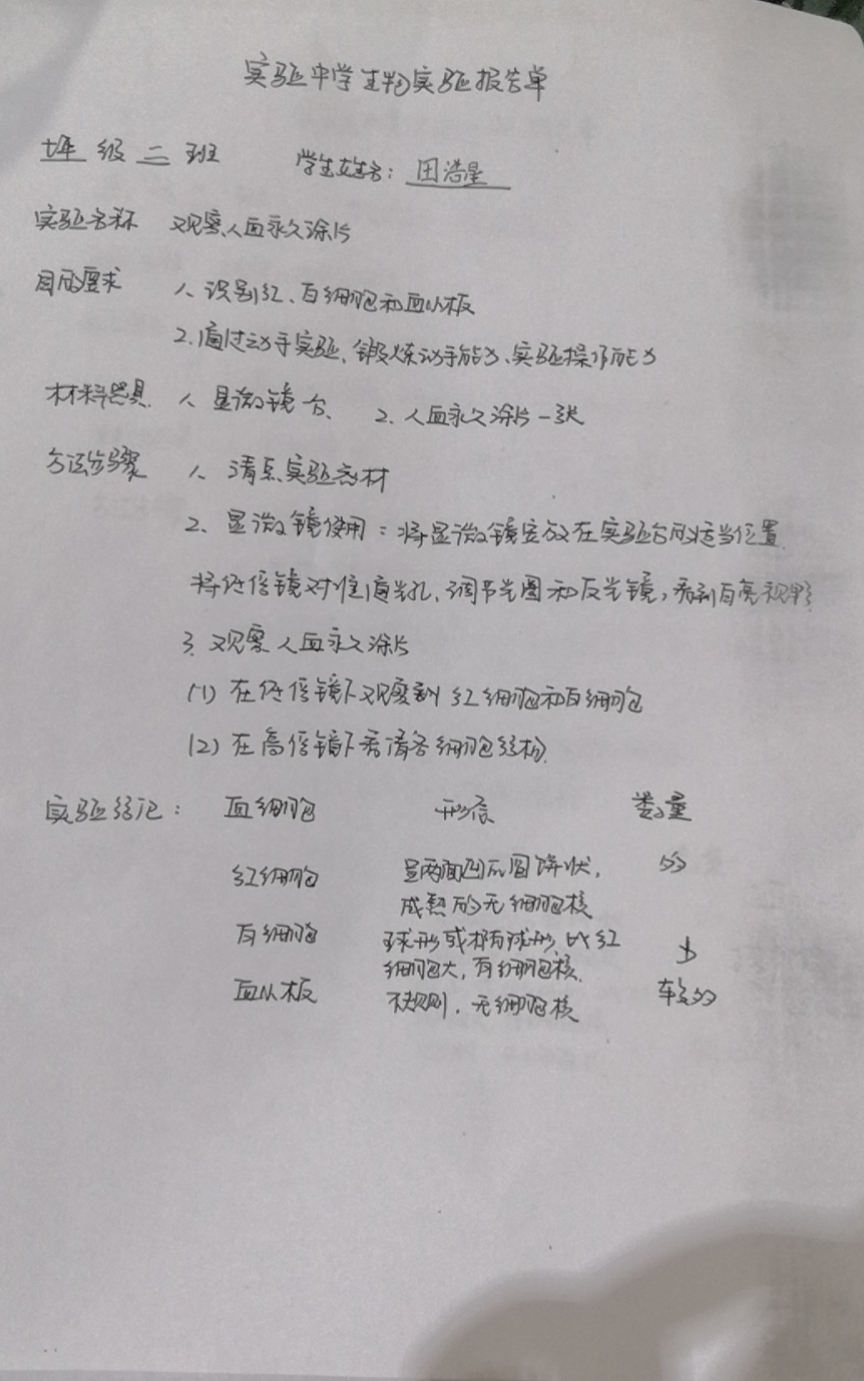 实验中学生物实验报告单
七年级 二 班 学生姓名: 田浩星
实验名称 观察人血永久涂片
目的要求 1、识别红、白细胞和血小板
2.通过动手实验,锻炼动手能力、实验操作能力
材料器具 1、显微镜一台、 2、人血永久涂片一张
方法步骤 1、清点实验器材
2、显微镜使用:将显微镜安放在实验台的适当位置
将低倍镜对准通光孔,调节光圈和反光镜,看到白亮视野
3、观察人血永久涂片
(1) 在低倍镜下观察到红细胞和白细胞
(2) 在高倍镜下看清各细胞结构
实验结论: 血细胞 形态 数量
红细胞 呈两面凹的圆饼状, 多
成熟的无细胞核
白细胞 球形或椭球形,比红 少
细胞大,有细胞核.
血小板 不规则,无细胞核 较多